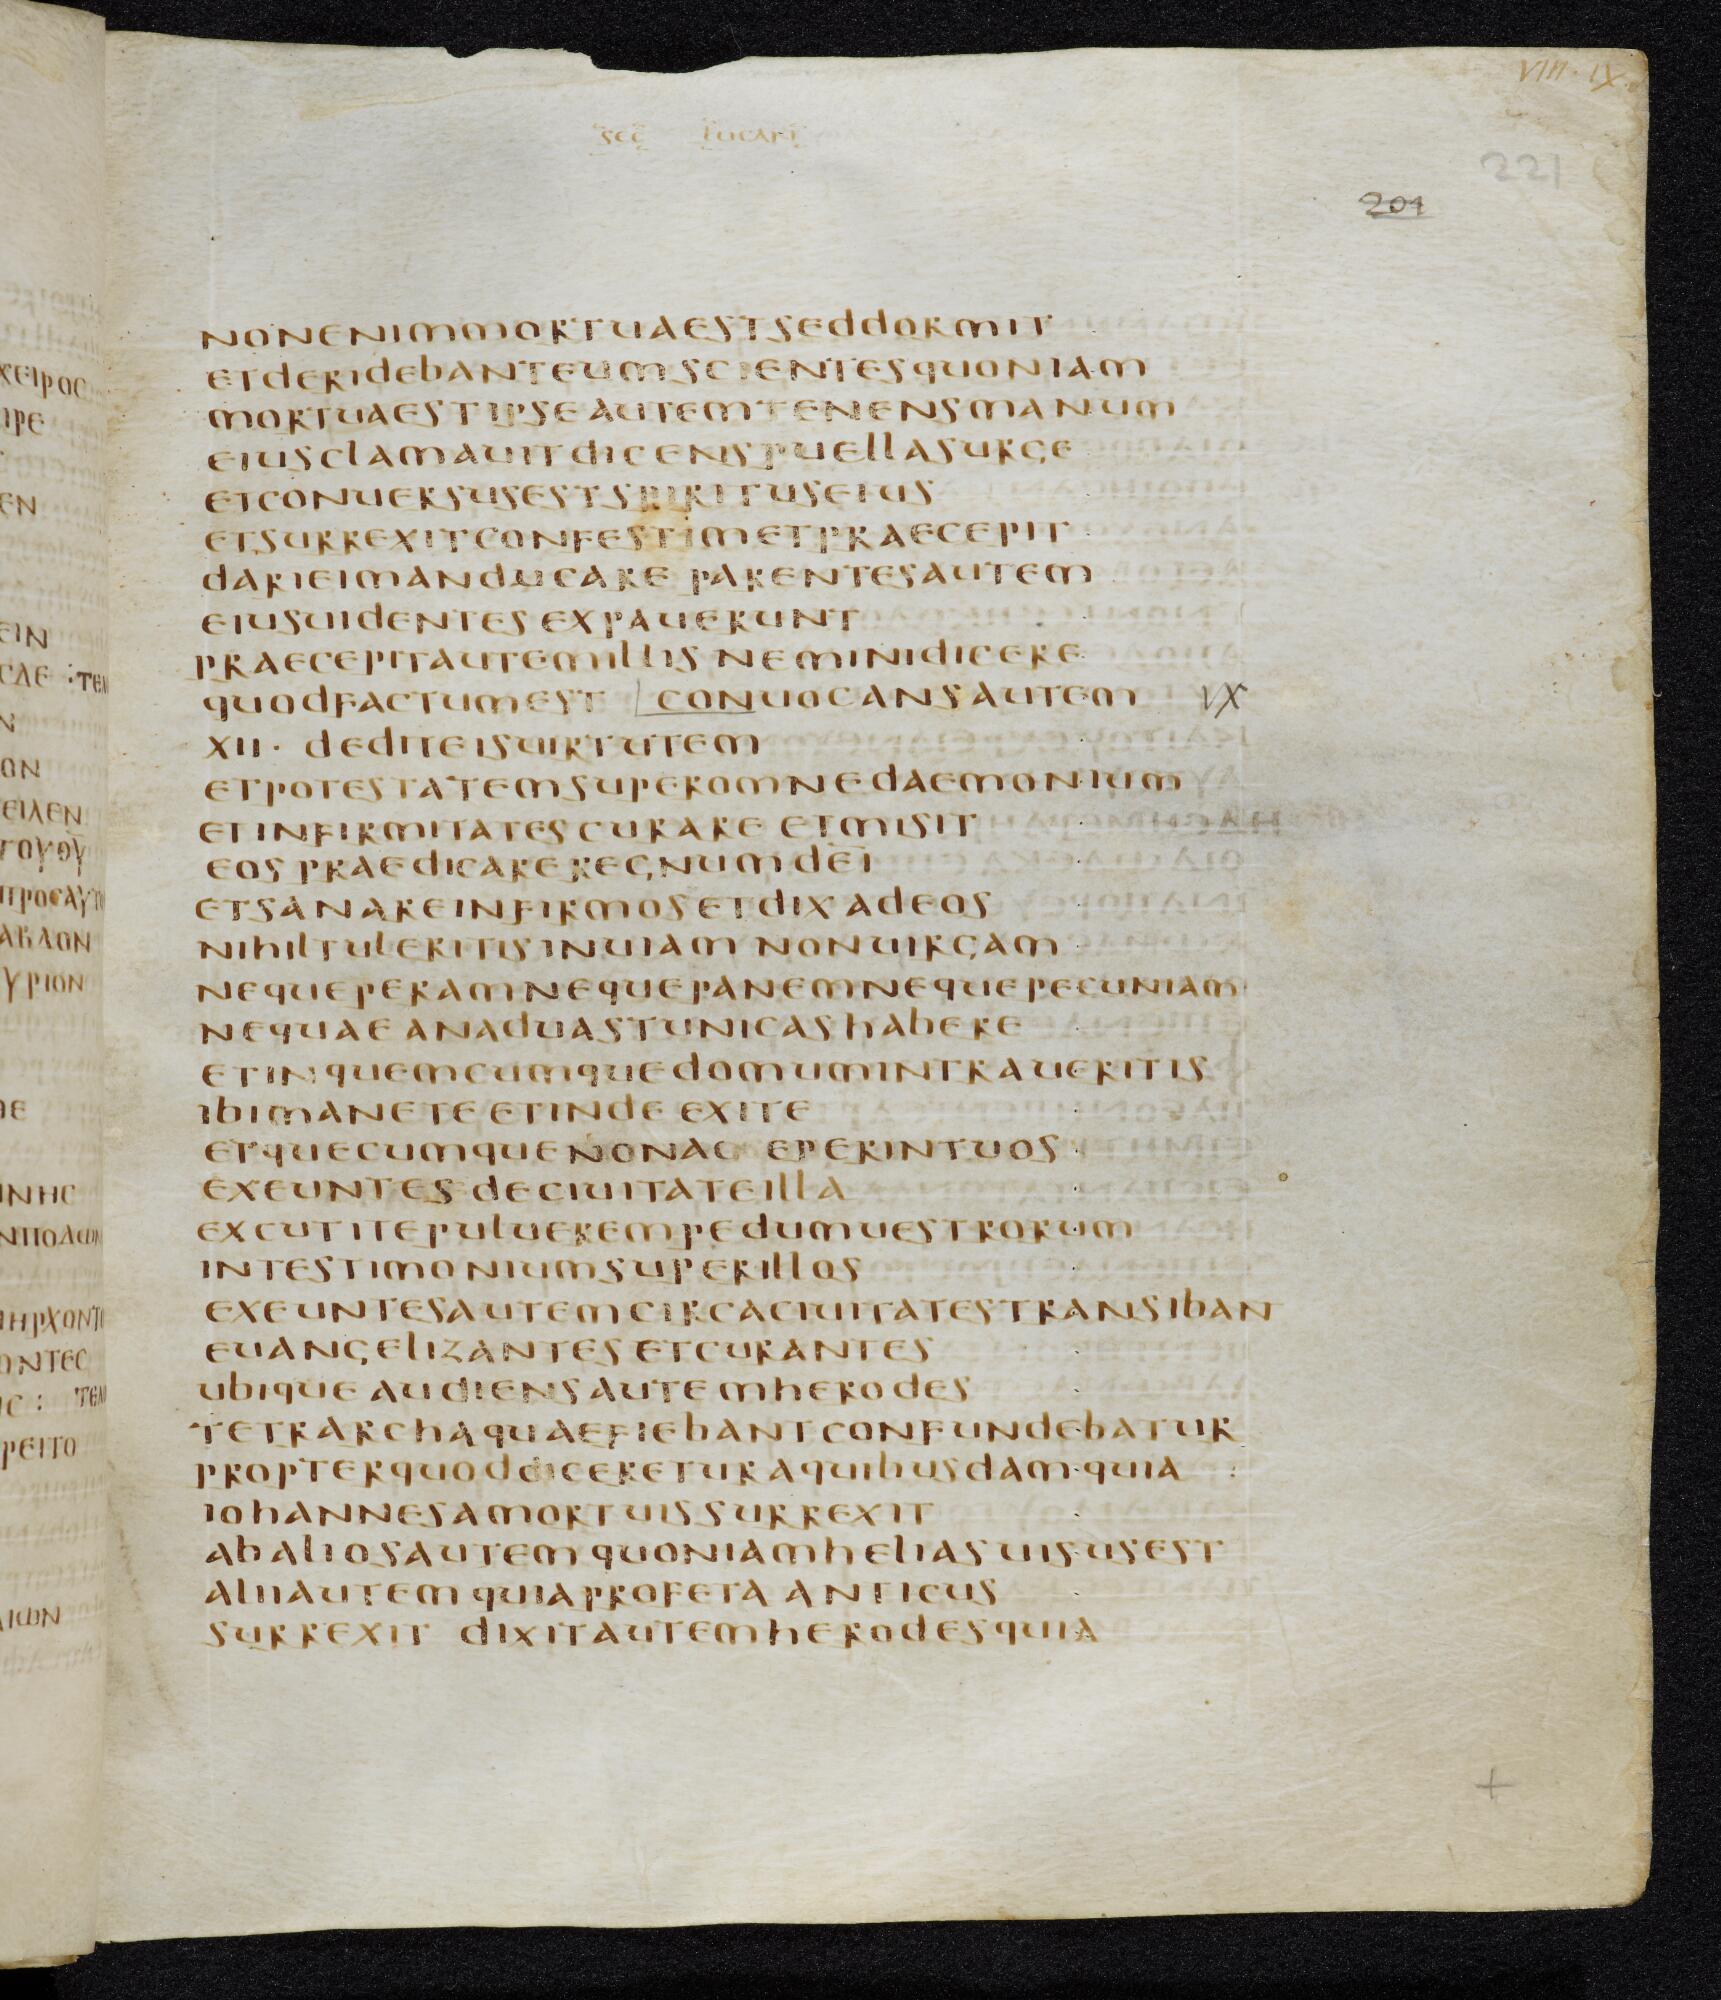 VIII · IX
sec lucan
221
201
nonenimmortuaestseddormit
etderidebanteumscientesquoniam
mortuaestipseautemtenensmanum
eiusclamauitdicenspuellasurge
etconuersusestspirituseius
etsurrexitconfestimetpraecepit
darieimanducare parentesautem
eiusuidentes expauerunt
praecepitautemillis neminidicere
quodfactumest conuocansautem VX
xii · dediteisuirtutem
etpotestatemsuperomnedaemonium
etinfirmitatescurare etmisit
eos praedicareregnumdei
etsanareinfirmosetdixadeos
nihiltuleritisinuiam nonuirgam
nequeperamnequepanemnequepecuniam
nequaeanaduastunicashabere
etinquemcumquedomumintraueritis
ibimanete etinde exite
etquecumquenonac eperintuos
exeuntesdeciuitateilla
excutitepuluerempedumuestrorum
intestimoniumsuperillos
exeuntesautemcircaciuitatestransiban
euangelizantesetcurantes
ubique audiensautemherodes
tetrarchaquaefiebantconfundebatur
propterquoddicereturaquibusdamquia
iohannesamortuissurrexit
abaliosautemquoniamheliasuisusest
aliiautemquiaprofeta anticus
surrexit dixitautemherodesquia